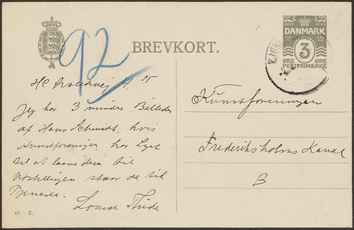 92
BREVKORT.
DANMARK
3
POSTFRIMÆRKE
HC Ørstedsvej
Jeg har 3 mindre Billeder
af Hans Schmidt, hvis
Kunstforeninger har Lyst
til at laane dem til
Udstillingen staar de til
Tjeneste.
Louise
Kunstforeningen
Frederiksholms Kanal
B